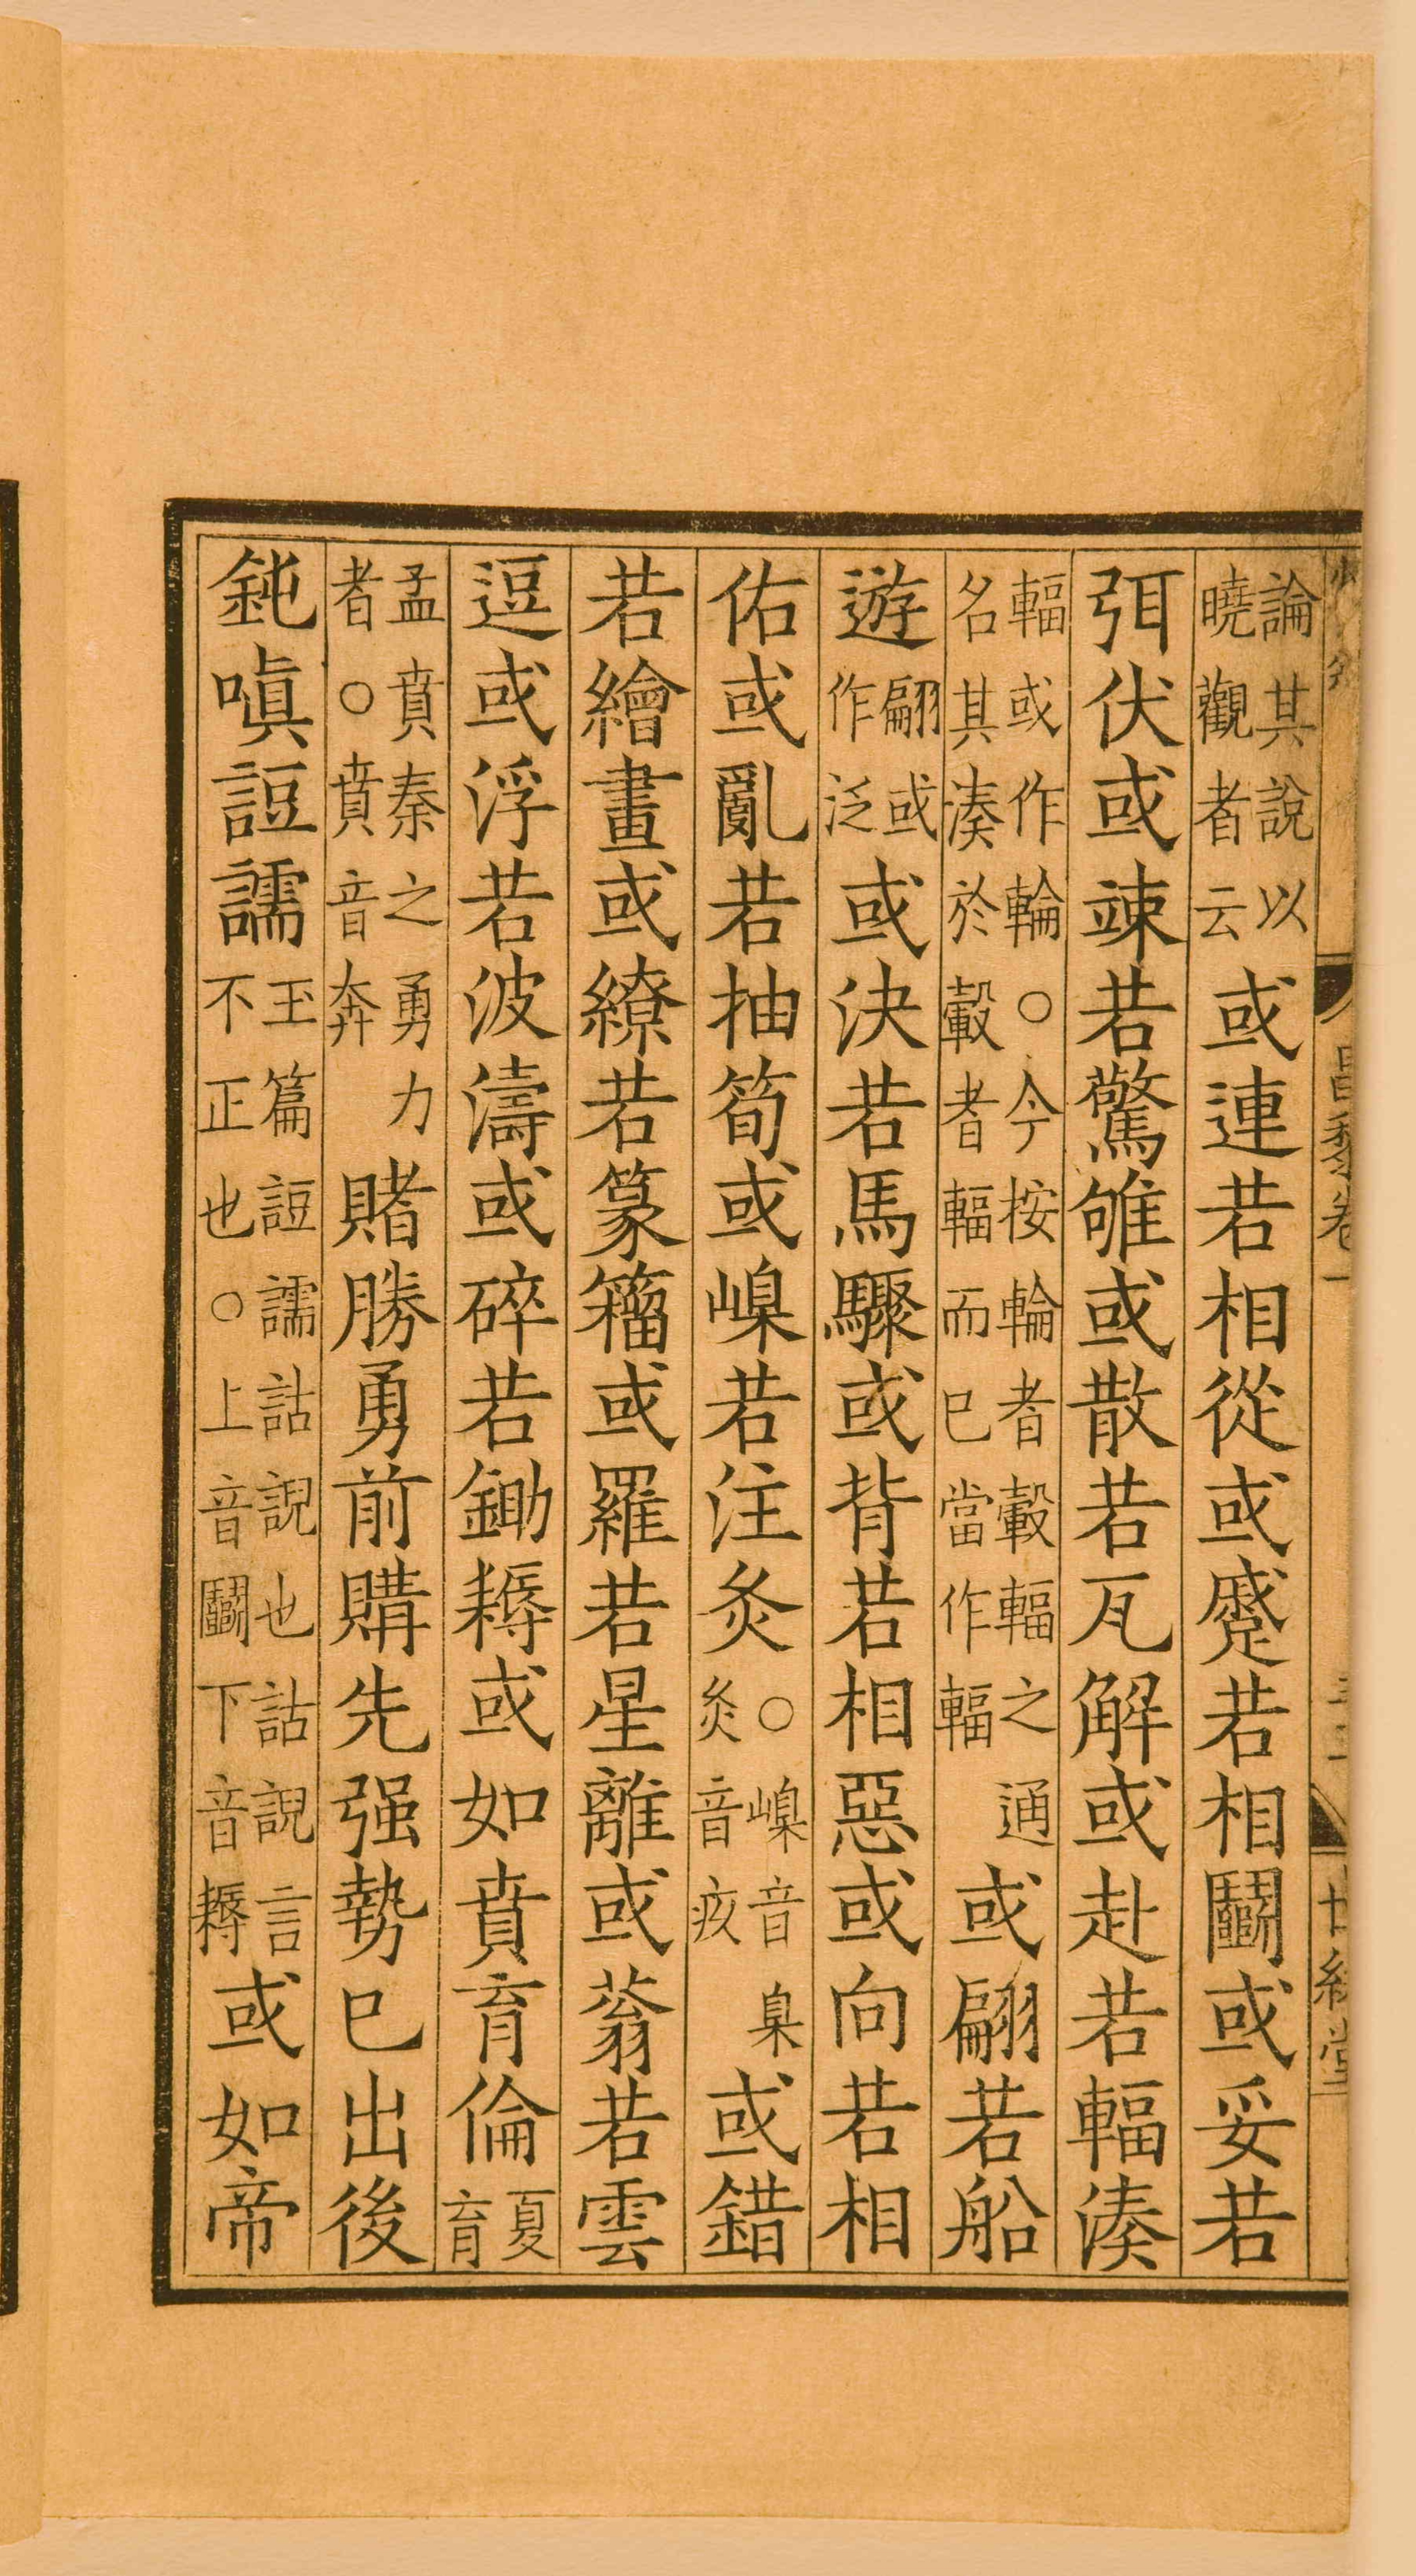 論其說以
曉觀者云
或連若相從或蹙若相鬭或妥若
弭伏或竦若驚雊或散若瓦解或赴若輻湊
輻或作輪○今按輪者轂輻之通
名其湊於轂者輻而已當作輻
或翩若船
遊
翩或
作泛
或決若馬驟或背若相惡或向若相
佑或亂若抽筍或嵲若注灸
○嵲音臬
灸音疚
或錯
若繪畫或繚若篆籀或羅若星離或蓊若雲
逗或浮若波濤或碎若鋤耨或如賁育倫
夏
育
孟賁秦之勇力
者○賁音奔
賭勝勇前購先强勢已出後
鈍嗔䛠譳
玉篇䛠譳詀誽也詀誽言
不正也○上音鬭下音耨
或如帝
昌黎卷一